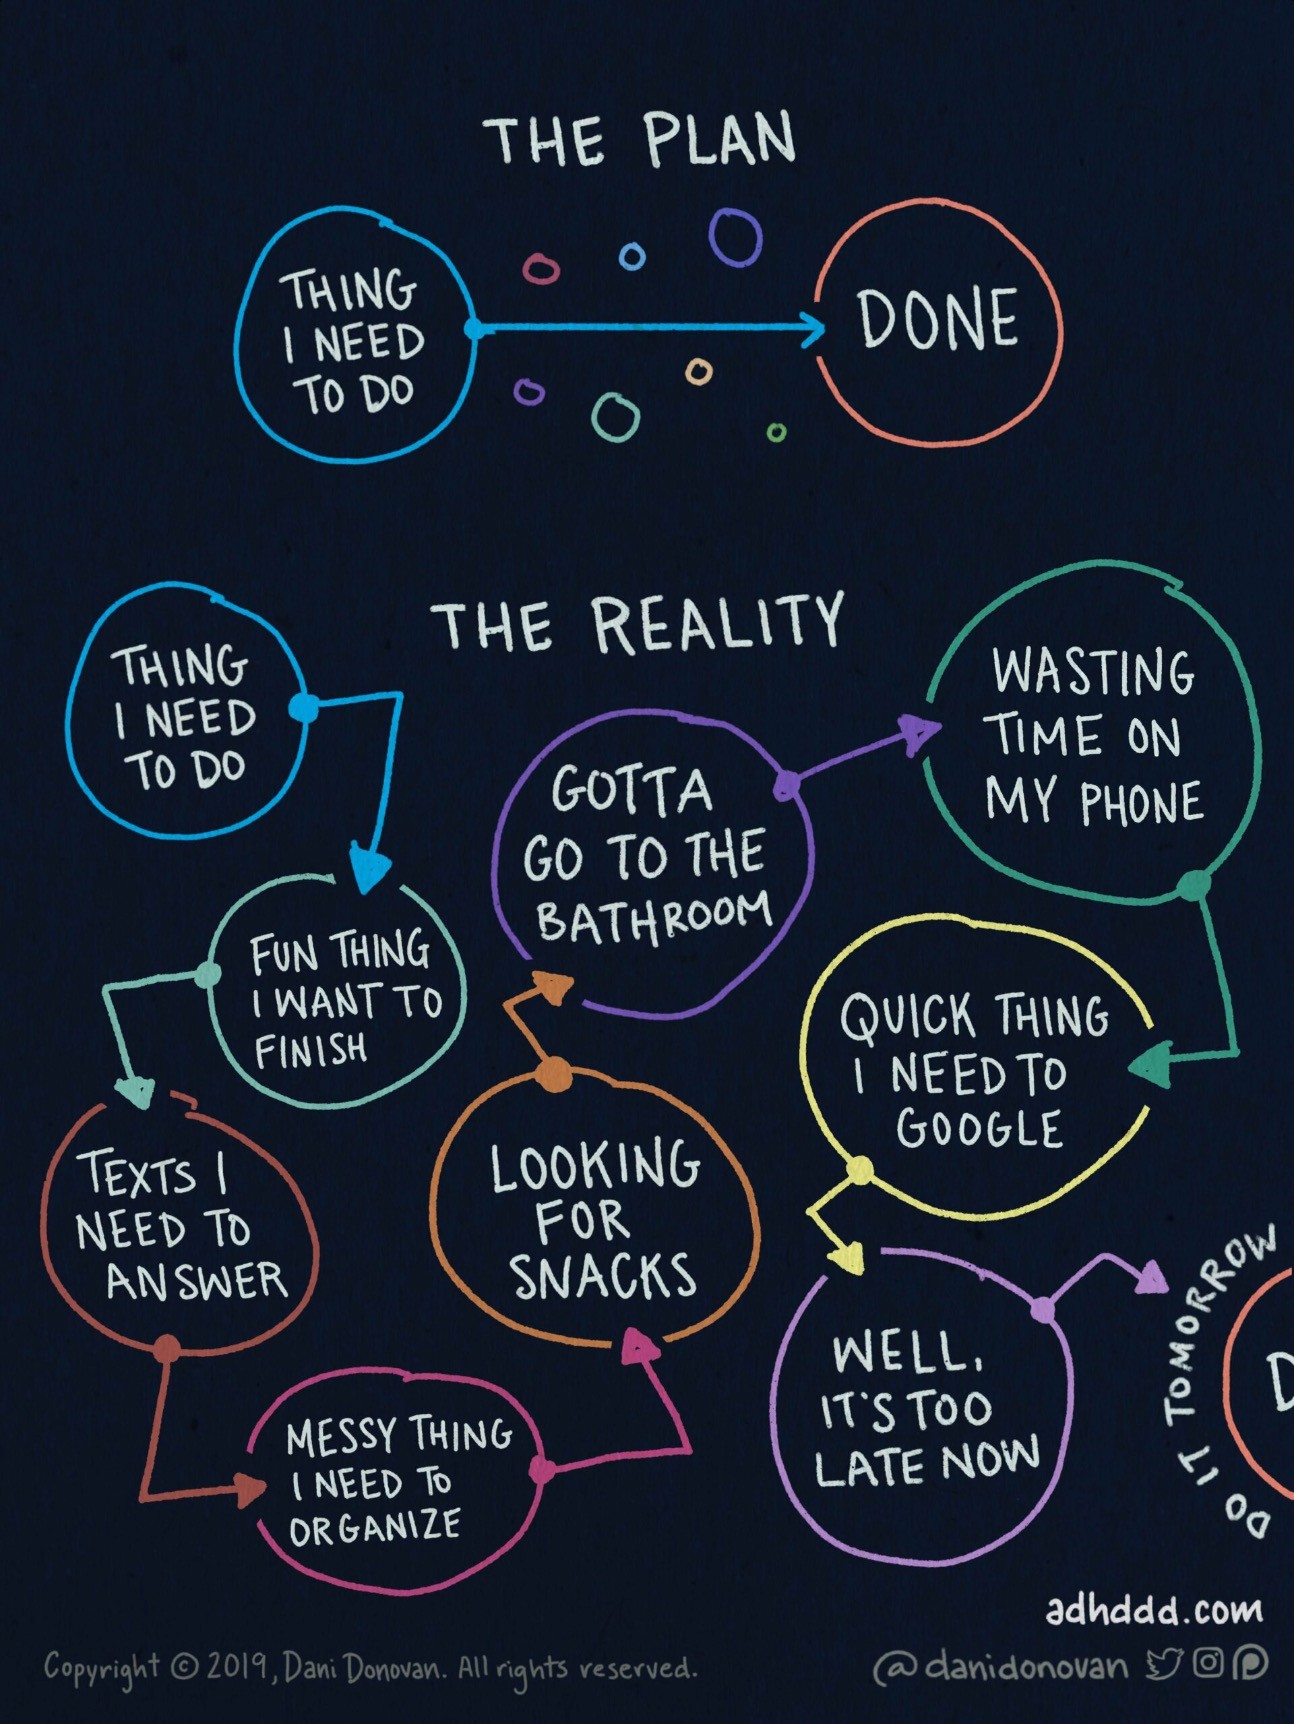 THE PLAN
THING
I NEED
TO DO
DONE
THE REALITY
THING
I NEED
TO DO
FUN THING
I WANT TO
FINISH
TEXTS I
NEED TO
ANSWER
MESSY THING
I NEED TO
ORGANIZE
LOOKING
FOR
SNACKS
GOTTA
GO TO THE
BATHROOM
WASTING
TIME ON
MY PHONE
QUICK THING
I NEED TO
GOOGLE
WELL,
IT'S TOO
LATE NOW
DO IT TOMORROW
D
adhddd.com
Copyright © 2019, Dani Donovan. All rights reserved.
@danidonovan